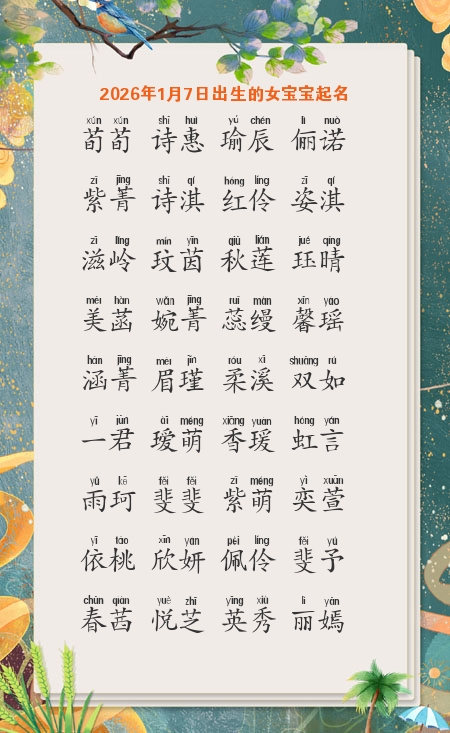 2026年1月7日出生的女宝宝起名
xún xún shī huì yú chén lì nuò
荀荀 诗惠 瑜辰 俪诺
zǐ jīng shī qí hóng líng zī qí
紫菁 诗淇 红伶 姿淇
zī lǐng mín yīn qiū lián jué qíng
滋岭 玟茵 秋莲 珏晴
měi hàn wǎn jīng ruǐ màn xīn yáo
美菡 婉菁 蕊缦 馨瑶
hán jīng méi jǐn róu xī shuāng rú
涵菁 眉瑾 柔溪 双如
yī jūn ài méng xiāng yuàn hóng yán
一君 瑷萌 香瑗 虹言
yǔ kē fěi fěi zǐ méng yì xuān
雨珂 斐斐 紫萌 奕萱
yī táo xīn yán pèi líng fěi yú
依桃 欣妍 佩伶 斐予
chūn qiàn yuè zhī yīng xiù lì yān
春茜 悦芝 英秀 丽嫣